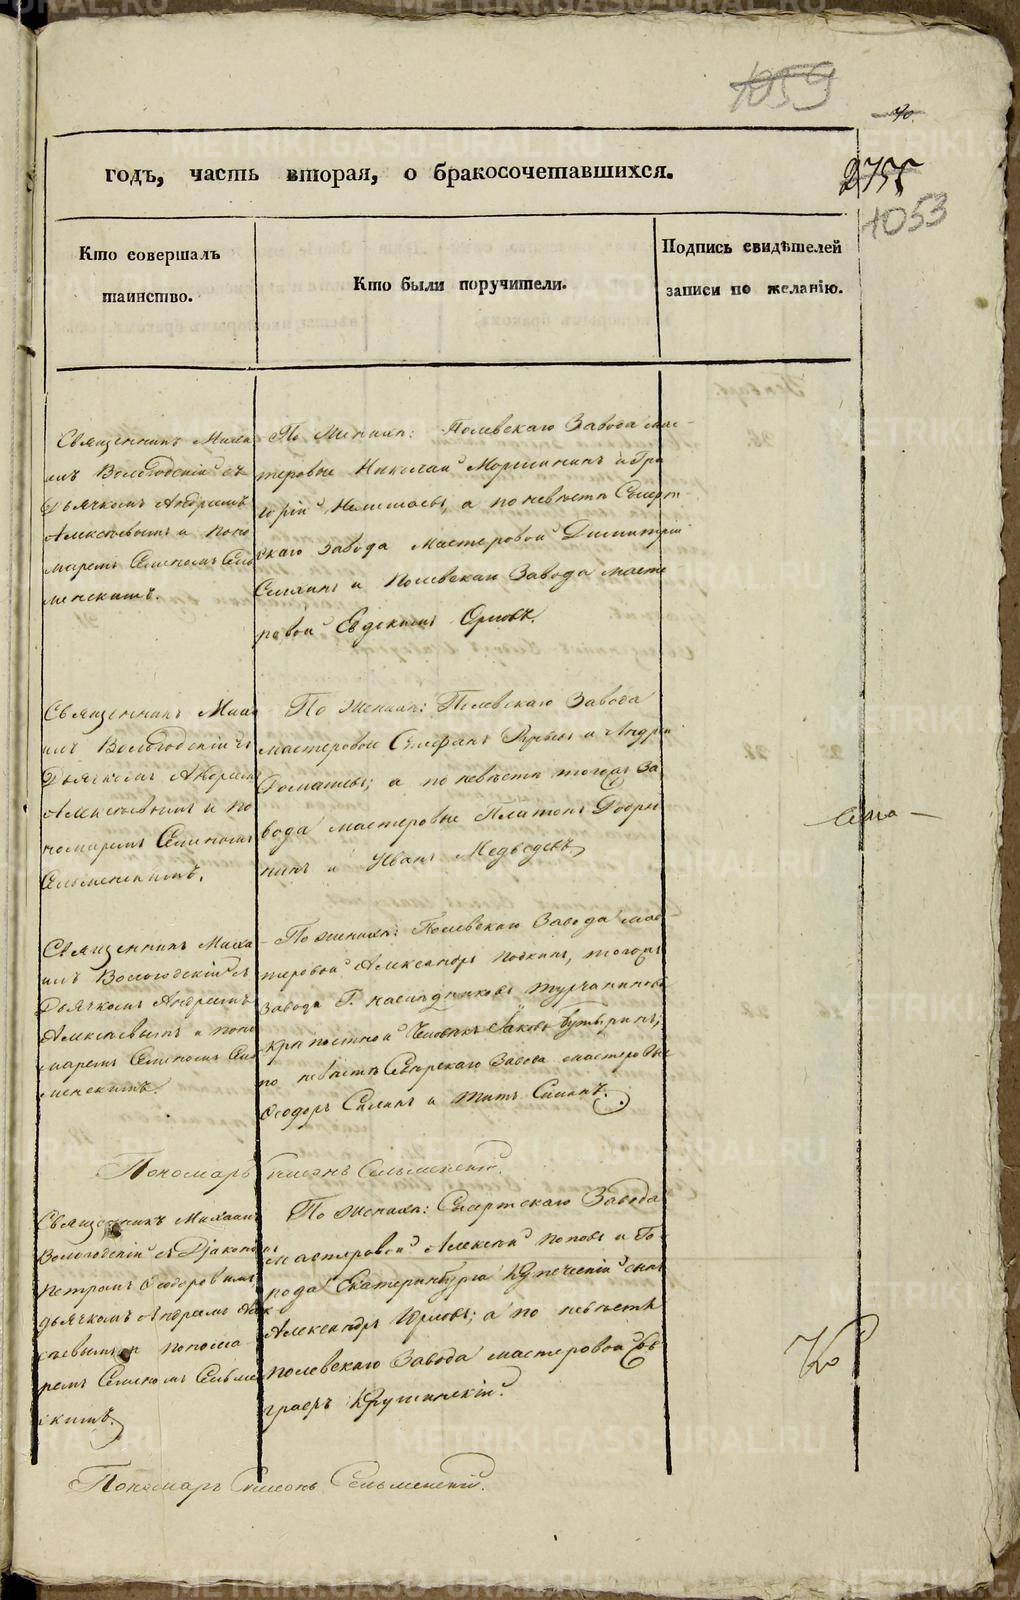 1059
годъ, часть вторая, о бракосочетавшихся.
1053
Кто совершалъ
таинство.
Кто были поручители.
Подпись свидѣтелей
записи по желанію.
Священникъ Миха
илъ Вологодскій съ
Дьячкомъ Андреемъ
Алексѣевымъ и поно
маремъ Семеномъ Сель
менскимъ.
По Женихѣ: Полевскаго Завода мас-
теровые Николай Моршининъ и Гри
горій, а по невѣстѣ Сысерт
скаго завода мастеровой Димитрій
и Полевскаго Завода масте
ровой Евдокимъ Орловъ.
Священникъ Миха
илъ Вологодскій съ
Дьячкомъ Андреемъ
Алексѣевымъ и по
номаремъ Семеномъ
Сельменскимъ.
По Женихѣ: Полевскаго Завода
мастеровые Стефанъ и Андрей
а по невѣстѣ тогожъ За
вода мастеровые Платонъ Добры
нинъ и Иванъ Медвѣдевъ
Священникъ Миха
илъ Вологодскій съ
Дьячкомъ Андреемъ
Алексѣевымъ и поно
маремъ Семеномъ Сель
менскимъ.
По женихѣ: Полевскаго Завода мас-
теровой Александръ тогожъ
завода Г. наслѣдниковъ Турчанинова
крѣпостной Человѣкъ Яковъ
по невѣстѣ Завода мастеровые
Ѳеодоръ и Титъ
Пономарь Симеонъ Сельменскій.
Священникъ Михаилъ
Вологодскій съ Діакономъ
Петромъ Ѳеодоровымъ,
дьячкомъ Андреемъ Алек
сѣевымъ и понома
ремъ Семеномъ Сельмен
скимъ.
По Женихѣ: Сысертскаго Завода
мастеровой Алексѣй Поповъ и Го-
рода Екатеринбурга Купеческій сынъ
Александръ а по невѣстѣ
полевскаго Завода мастеровой Ев
графъ
Пономарь Симеонъ Сельменскій.
METRIKI.GASO-URAL.RU